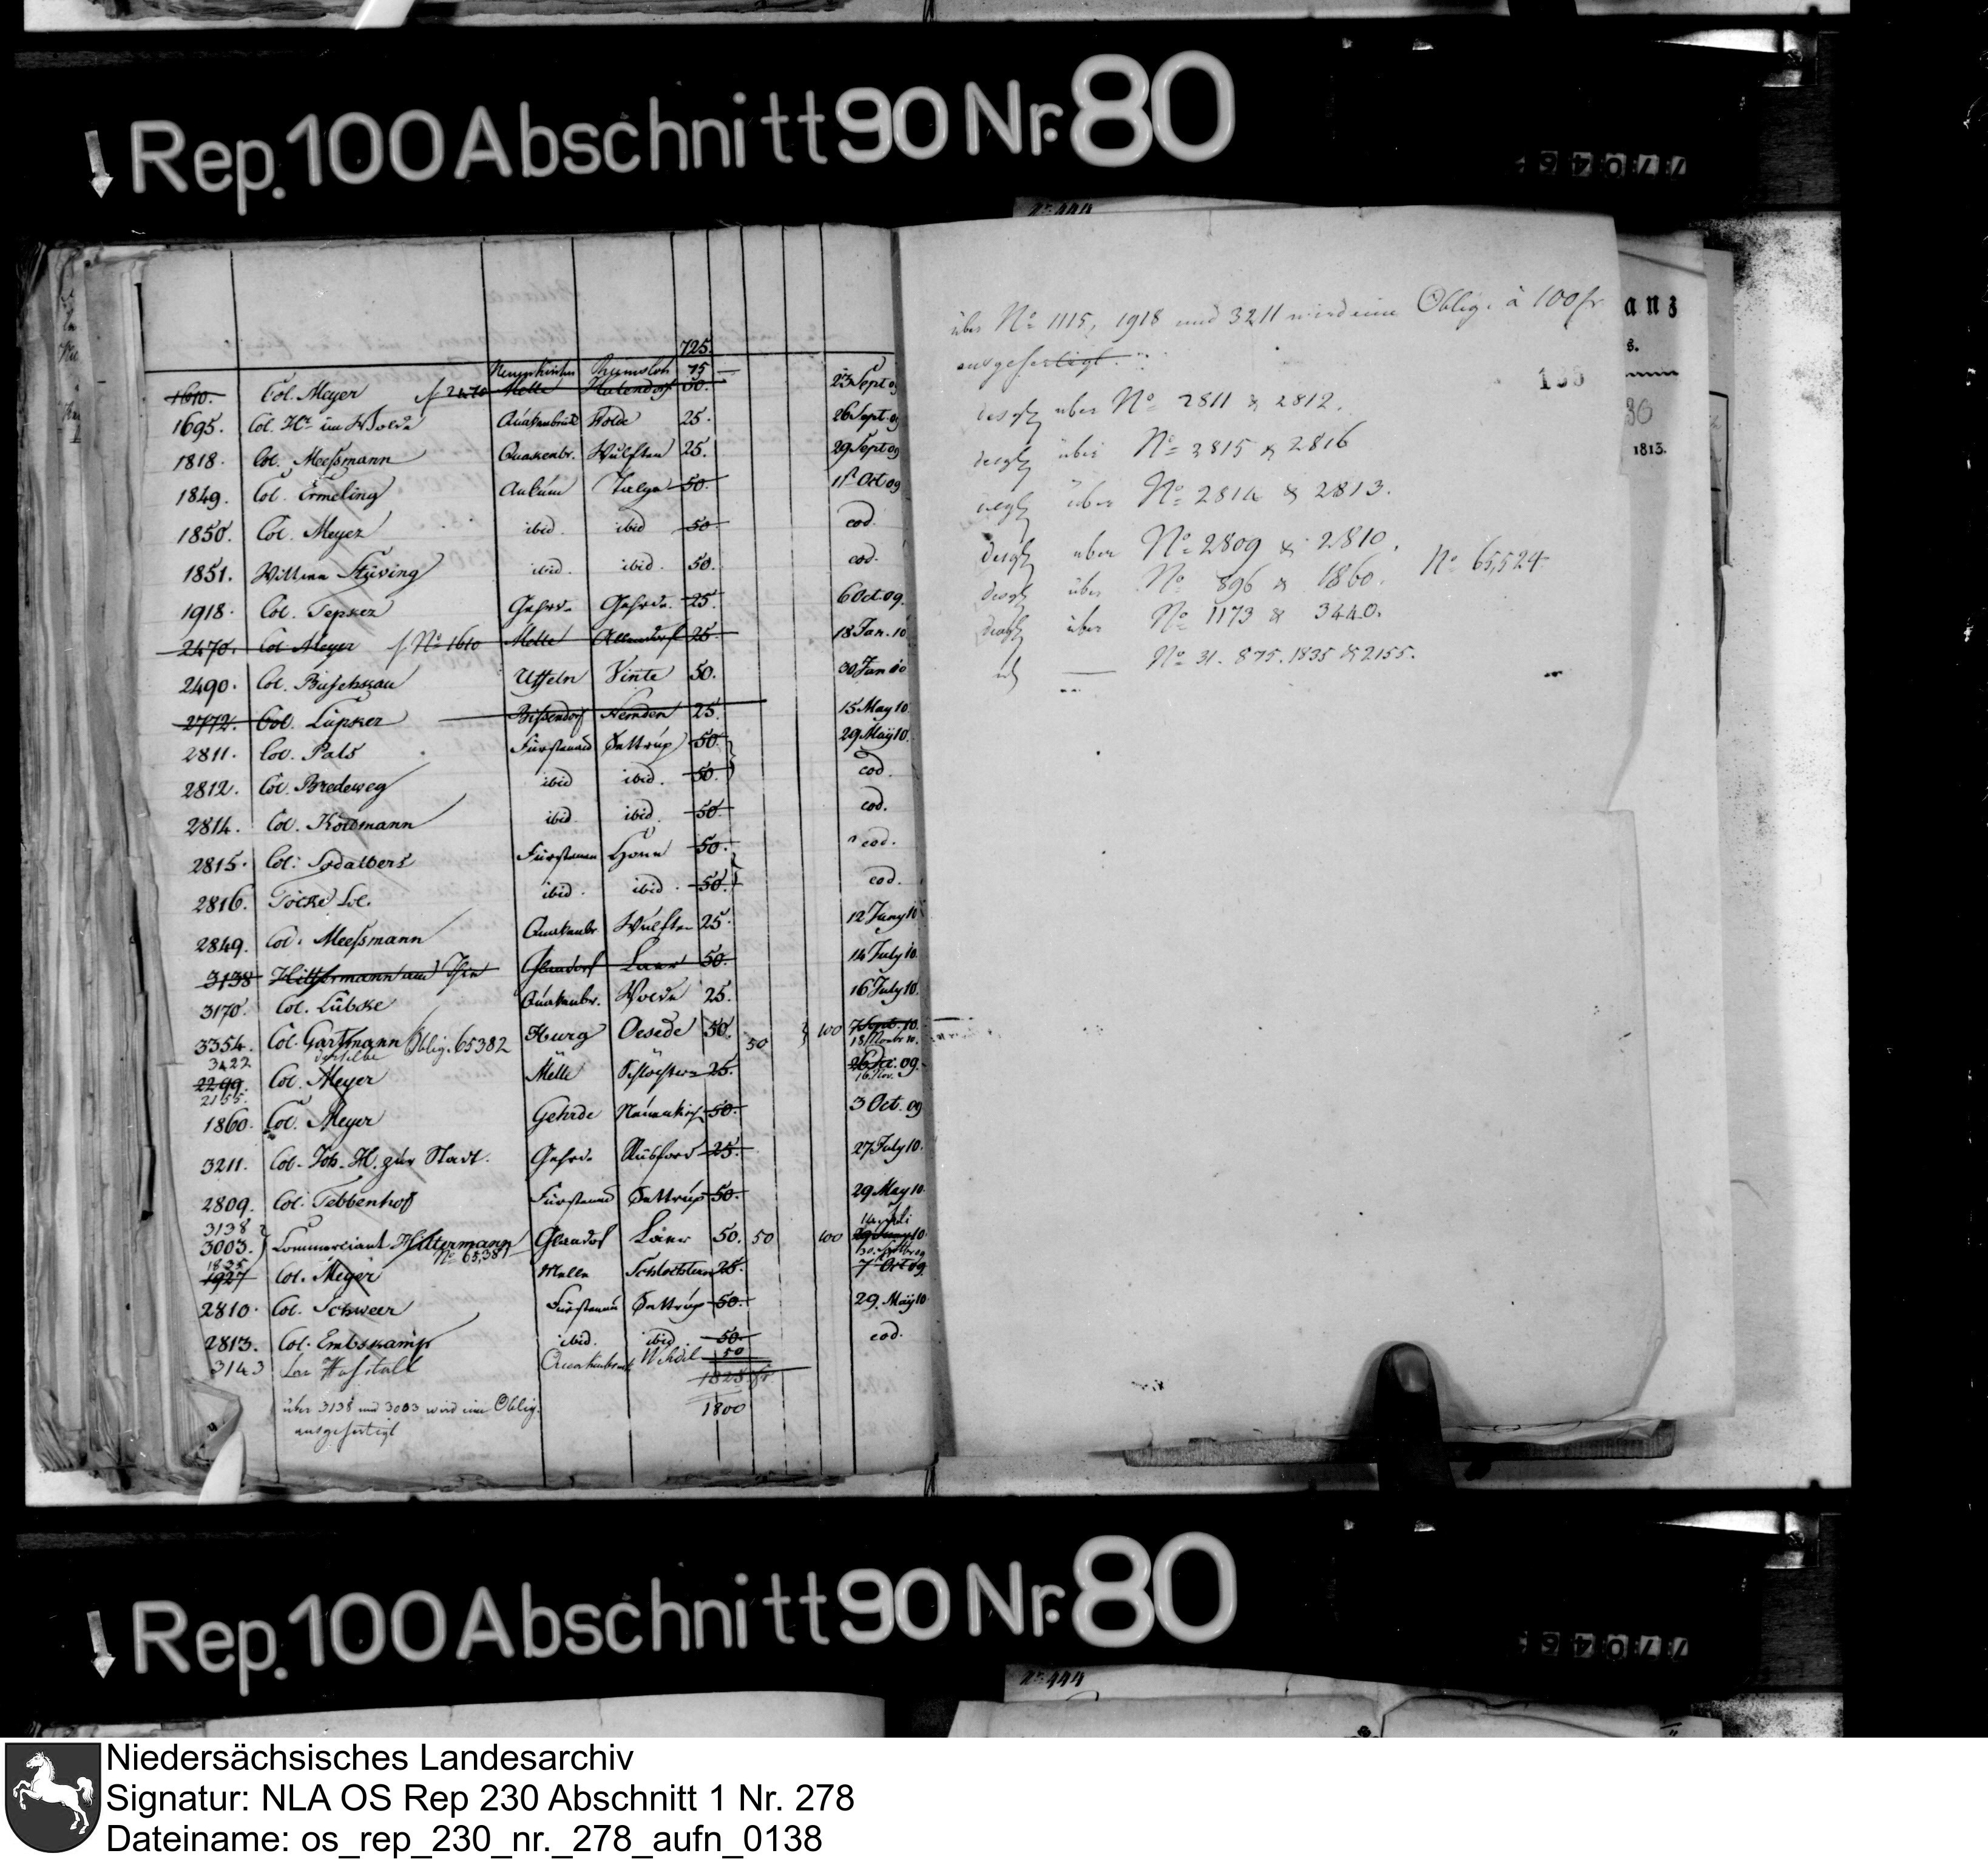 Rep. 100 Abschnitt 90 Nr. 80
725.
Neuenkirchen 75
1610. Col. Meyer f 2470 Melle 50. 23 Sept 09
1695. Col. im Wolde Quakenbrück Wolde 25. 26 Sept. 09
1818. Col. Meeßmann Quakenbr. Wulften 25. 29 Sept 09
1849. Col. Ermeling Ankum Talge 50. 11t Oct 09
1850. Col. Meyer ibid. ibid 50. eod.
1851. Wittwe Stüving ibid. ibid. 50. eod.
1918. Col. Tepker Gehrde Gehrde 25. 6 Oct. 09.
2470. Col Meyer f. No 1610 Melle 25. 18 Jan. 10
2490. Col. Uffeln Vinte 50. 30 Jan 10
2772. Col. Lüpker Bißendorf Nemden 25. 15 May 10
2811. Col. Pals Fürstenau Settrup 50. 29 May 10.
2812. Col. Bredeweg ibid ibid. 50. eod.
2814. Col. Koldmann ibid. ibid. 50. eod.
2815. Col. Fürstenau 50. eod.
2816. Col. ibid. ibid. 50. eod.
2849. Col. Meeßmann Quakenbr. Wulften 25. 12 Juny 10
3138 Hiltermann Glandorf Laer 50. 14 July 10.
3170. Col. Lübcke Quakenbr. Wolde 25. 16 July 10.
3354. Col. Gartmann Oblig. 65382 Iburg Oesede 50. 50 100 7 Sept. 10.
3422 derselbe 18 Novbr 10.
2299. Col. Meyer Melle 25. 09.
2155. 16 Nov.
1860. Col. Meyer Gehrde 50. 3 Oct. 09
3211. Col. Joh. H. zur Stadt. Gehrde Rüsfort 25. 27 July 10.
2809. Col. Tebbenhof Fürstenau Settrup 50. 29 May 10.
3138
3003. Commerciant Hiltermann Glandorf Laer 50. 50 100
No 65,381
1835
1927 Col. Meyer Melle Schlochtern 25. 7 Oct 09
2810. Col. Schweer Fürstenau Settrup 50. 29. May 10
2813. Col. Embskamp ibid. ibid. 50. eod.
3143 50
1825 fr
1800
über 3138 und 3003 wird eine Oblig.
ausgefertigt
über No 1115, 1918 und 3211 wird eine Oblig. à 100 fr
ausgefertigt.
desgl. über No 2811 & 2812.
desgl. über No 2815 & 2816
desgl. über No 2814 & 2813.
desgl. über No 2809 & 2810.
desgl. über No 896 & 1860. No 65,524
desgl. über No 1173 & 3440.
id. No 31. 875. 1835 & 2155.
anz
s.
30
1813.
Rep. 100 Abschnitt 90 Nr. 80
No 444
Niedersächsisches Landesarchiv
Signatur: NLA OS Rep 230 Abschnitt 1 Nr. 278
Dateiname: os_rep_230_nr._278_aufn_0138